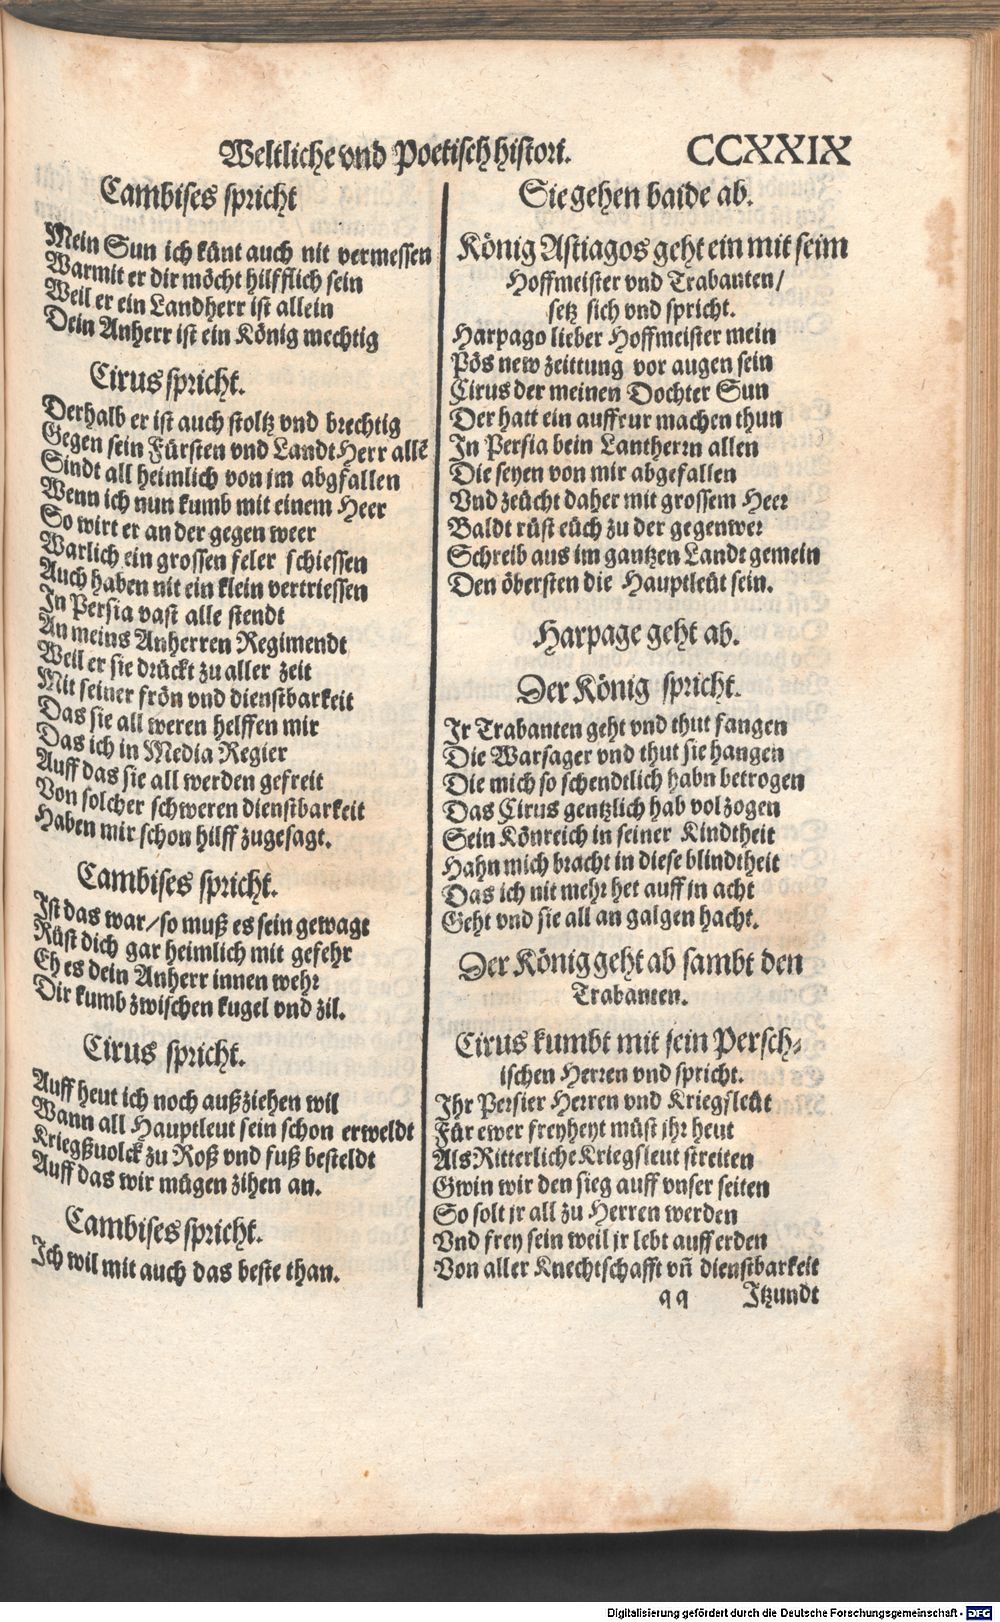 Weltliche vnd Poetisch histori. CCXXIX
Cambises spricht
Mein Sun ich künt auch nit vermessen
Warmit er dir möcht hilfflich sein
Weil er ein Landherr ist allein
Dein Anherr ist ein König mechtig
Cirus spricht.
Derhalb er ist auch stoltz vnd brechtig
Gegen sein Fürsten vnd Landt Herr allẽ
Sindt all heimlich von im abgfallen
Wenn ich nun kumb mit einem Heer
So wirt er an der gegen weer
Warlich ein grossen feler schiessen
Auch haben nit ein klein vertriessen
In Persia vast alle stendt
An meins Anherren Regimendt
Weil er sie drückt zu aller zeit
Mit seiner frön vnd dienstbarkeit
Das sie all weren helffen mir
Das ich in Media Regier
Auff das sie all werden gefreit
Von solcher schweren dienstbarkeit
Haben mir schon hilff zugesagt.
Cambises spricht.
Ist das war/so muß es sein gewagt
Rüst dich gar heimlich mit gefehr
Eh es dein Anherr innen wehr
Dir kumb zwischen kugel vnd zil.
Cirus spricht.
Auff heut ich noch außziehen wil
Wann all Hauptleut sein schon erweldt
Kriegßuolck zu Roß vnd fuß besteldt
Auff das wir mügen zihen an.
Cambises spricht.
Ich wil mit auch das beste than.
Sie gehen baide ab.
König Astiagos geht ein mit seim
Hoffmeister vnd Trabanten/
setz sich vnd spricht.
Harpago lieber Hoffmeister mein
Pös new zeittung vor augen sein
Cirus der meinen Dochter Sun
Der hatt ein auffrur machen thun
In Persia bein Lantherrn allen
Die seyen von mir abgefallen
Vnd zeücht daher mit grossem Heer
Baldt rüst eüch zu der gegenwer
Schreib aus im gantzen Landt gemein
Den öbersten die Hauptleüt sein.
Harpage geht ab.
Der König spricht.
Ir Trabanten geht vnd thut fangen
Die Warsager vnd thut sie hangen
Die mich so schendtlich habn betrogen
Das Cirus gentzlich hab volzogen
Sein Könreich in seiner Kindtheit
Hahn mich bracht in diese blindtheit
Das ich nit mehr het auff in acht
Geht vnd sie all an galgen hacht.
Der König geht ab sambt den
Trabanten.
Cirus kumbt mit sein Persch-
ischen Herren vnd spricht.
Ihr Persier Herren vnd Kriegsleüt
Für ewer freyheyt müst jhr heut
Als Ritterliche Kriegsleut streiten
Gwin wir den sieg auff vnser seiten
So solt jr all zu Herren werden
Vnd frey sein weil jr lebt auff erden
Von aller Knechtschafft vñ dienstbarkeit
qq Itzundt
Digitalisierung gefördert durch die Deutsche Forschungsgemeinschaft - DFG